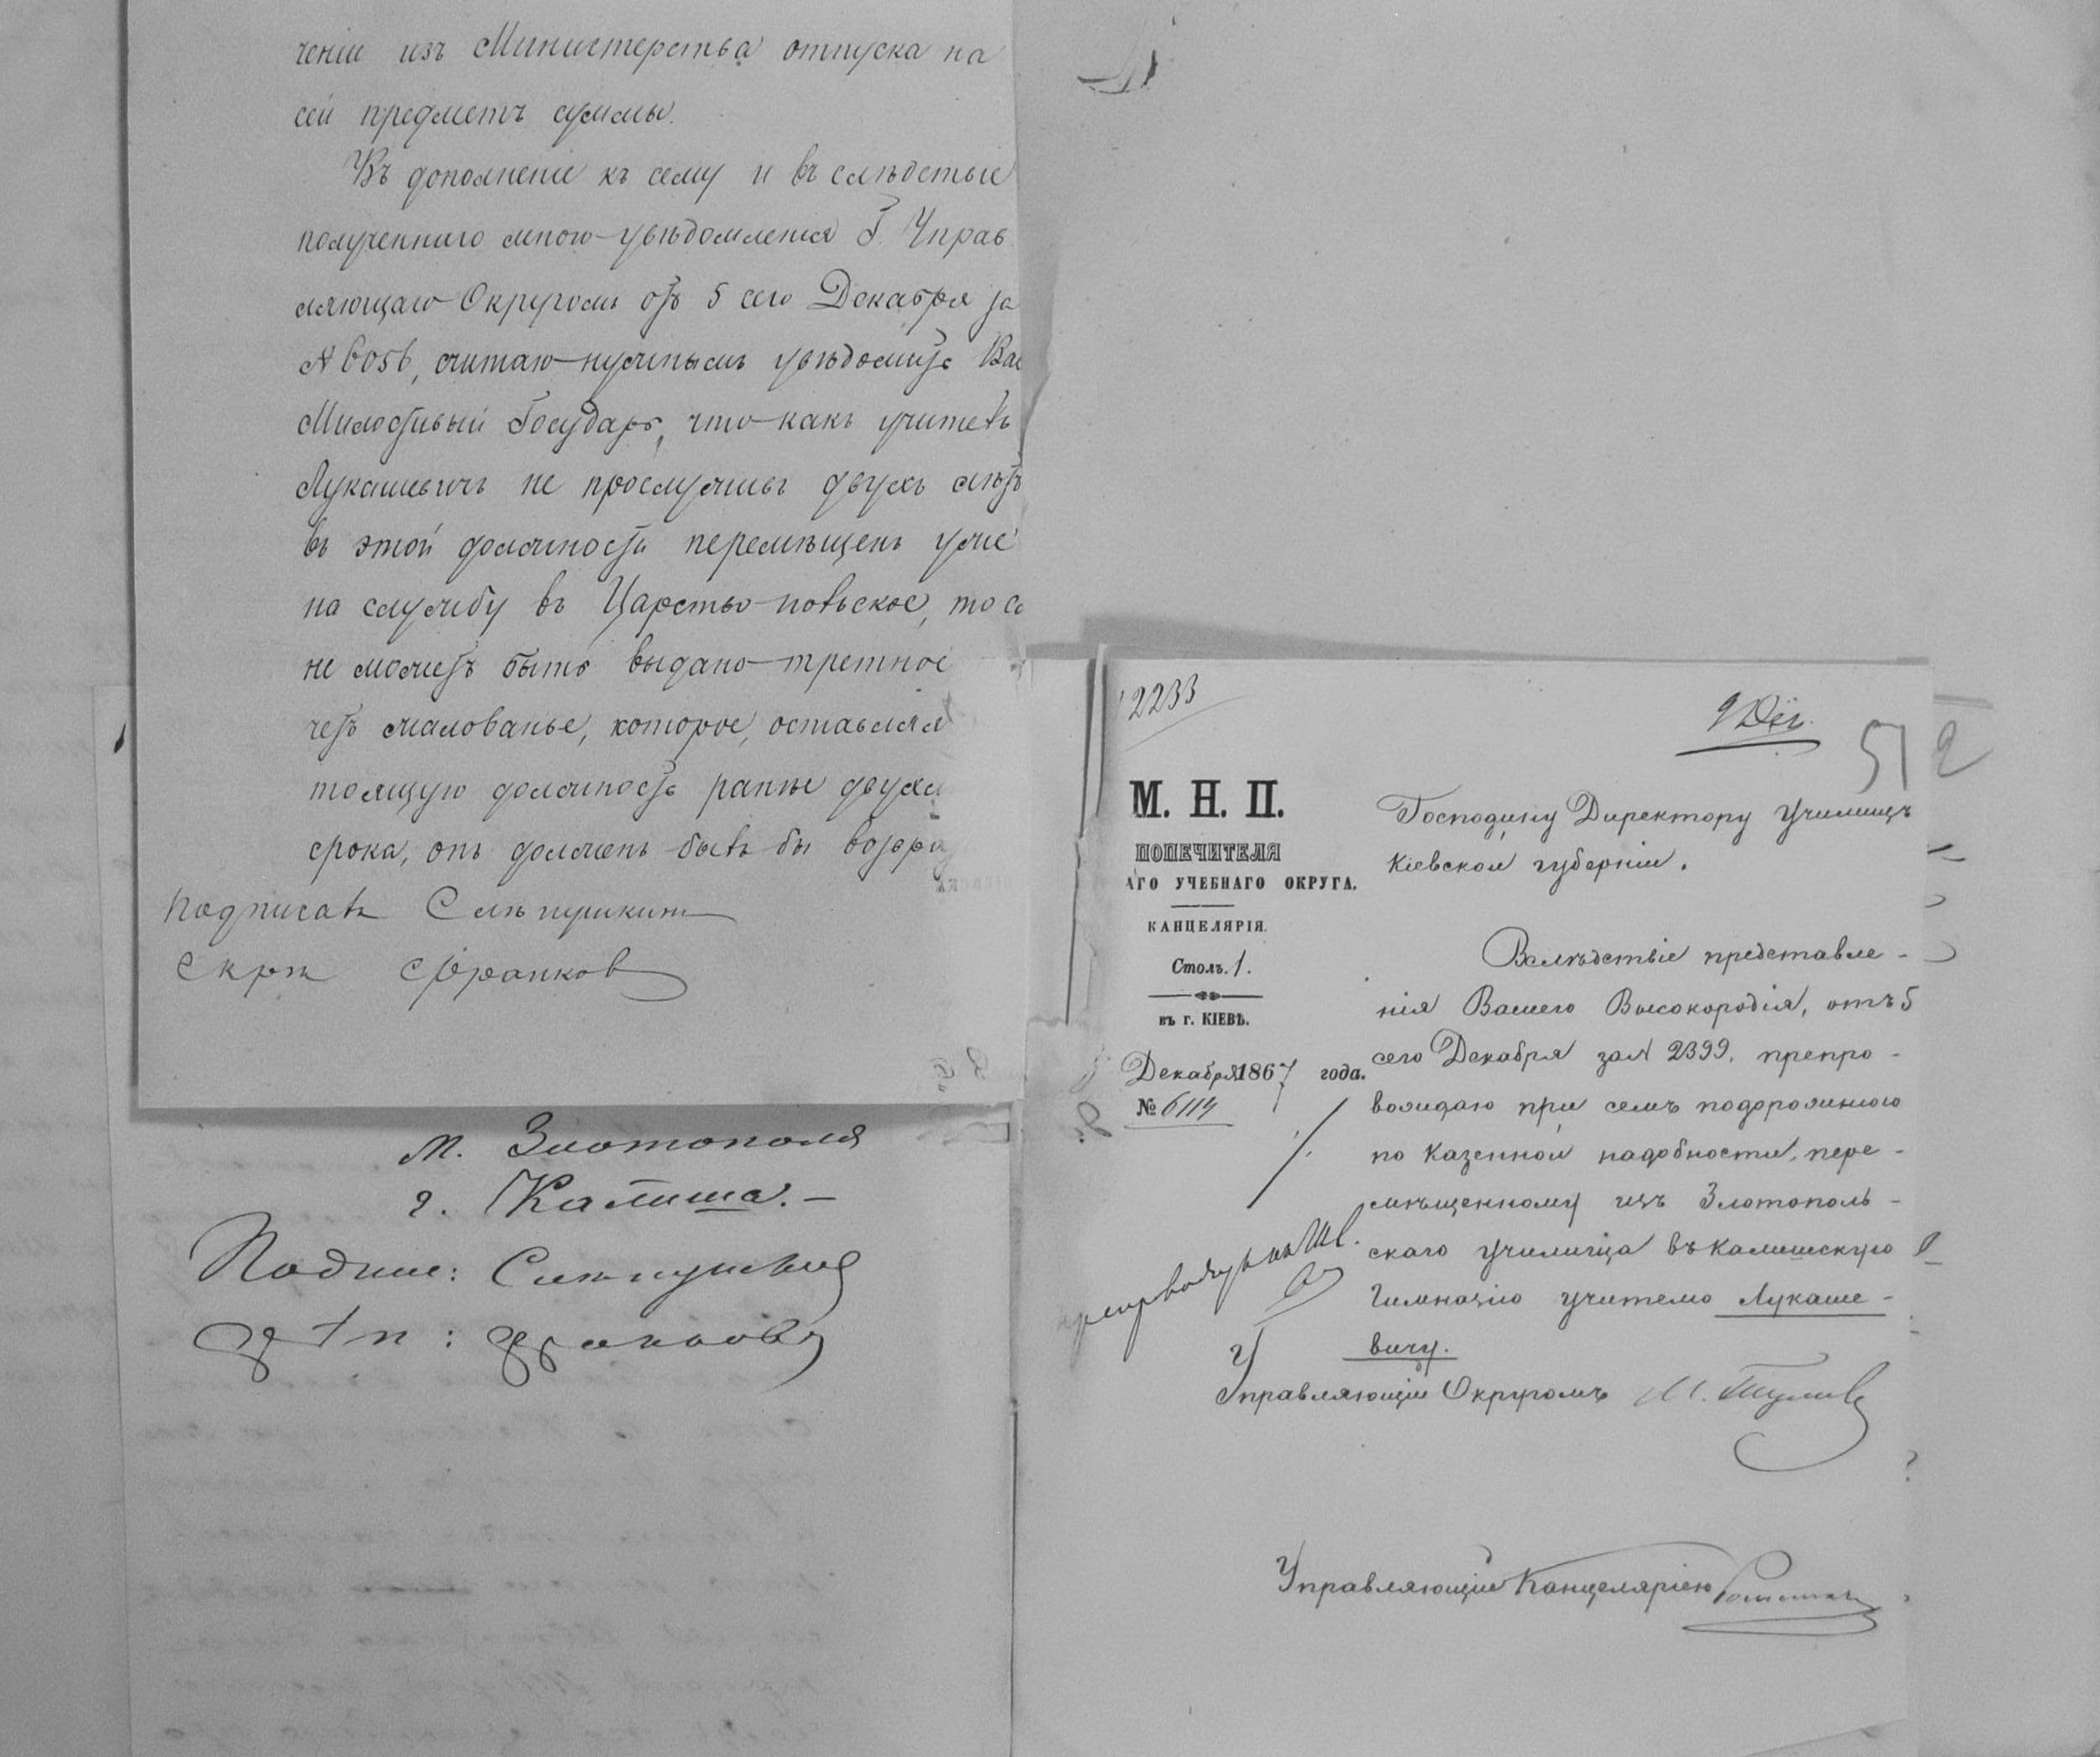 ченіи изъ Министерства отпуска на
сей предметъ суммы.
Въ дополненіе къ сему и въ слѣдствіе
полученнаго мною увѣдомленія Г. Управ
ляющаго Округомъ отъ 5 сего Декабря за
№ 6056, считаю нужнымъ увѣдомить Вас
Милостивый Государь, что какъ учитель
Лукашевичъ не прослуживъ двухъ лѣтъ
въ этой должности перемѣщенъ уже
на службу въ Царство Польское, то
не можетъ быть выдано третное
четъ жалованье, которое, оставляя
тоящую должность ранѣе двухъ
срока, онъ долженъ былъ бы возвра
Подписалъ Слѣпушкинъ
Скрѣп Франков
м. Златополя
г. Калиша.
Подпис: Слѣпушкинъ
Франковъ
12233
9 Дек.
51 2
М. Н. П.
ПОПЕЧИТЕЛЯ
АГО УЧЕБНАГО ОКРУГА.
КАНЦЕЛЯРІЯ.
Столъ. 1.
въ г. КІЕВѢ.
Декабря 1867 года.
№ 6114
Господину Директору Училищъ
Кіевской губерніи.
Вслѣдствіе представле-
нія Вашего Высокородія, отъ 5
сего Декабря за № 2399, препро-
вождаю при семъ подорожную
по казенной надобности, пере-
мѣщенному изъ Златополь-
скаго училища въ Калишскую
Гимназію учителю Лукаше-
вичу.
Управляющій Округомъ М. Тулов
Управляющій Канцеляріею